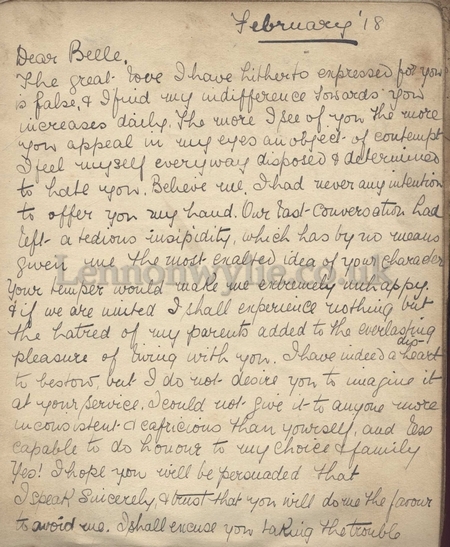 February '18
Dear Belle,
The great love I have hitherto expressed for you
is false, & I find my indifference towards you
increases daily. The more I see of you the more
you appeal in my eyes an object of contempt
I feel myself everyway disposed & determined
to hate you. Believe me, I had never any intention
to offer you my hand. Our last conversation had
left a tedious insipidity, which has by no means
given me the most exalted idea of your character
Your temper would make me extremely unhappy.
& if we are united I shall experience nothing but
the hatred of my parents added to the everlasting
dis-
pleasure of living with you. I have indeed a heart
to bestow, but I do not desire you to imagine it
at your service. I could not give it to anyone more
inconsistent & capricious than yourself, and less
capable to do honour to my choice & family
Yes! I hope you will be persuaded that
I speak sincerely, & trust that you will do me the favour
to avoid me. I shall excuse you taking the trouble
Lennonwylie.co.uk